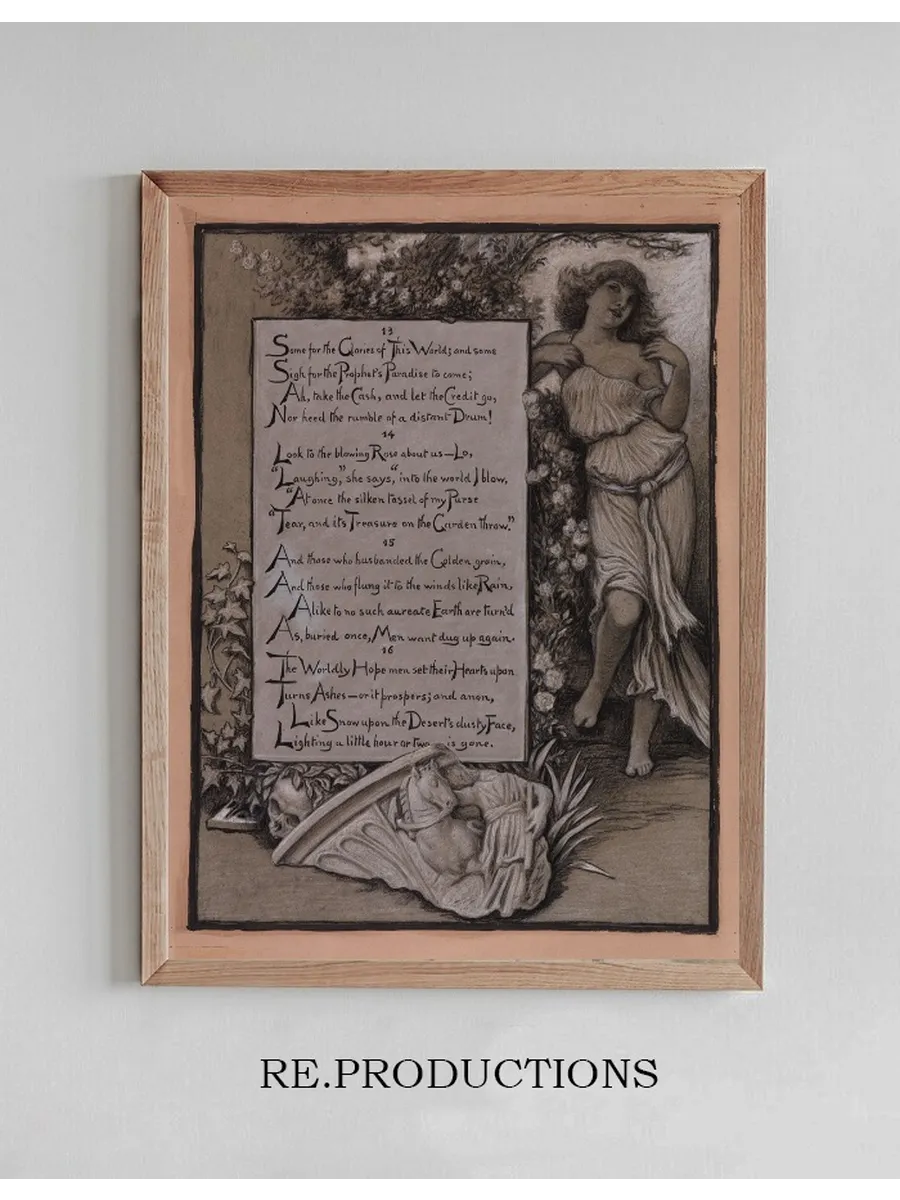 13
Some for the Glories of This World; and some
Sigh for the Prophet's Paradise to come;
Ah, take the Cash, and let the Credit go,
Nor heed the rumble of a distant Drum!
14
Look to the blowing Rose about us—Lo,
"Laughing," she says, "into the world I blow,
"At once the silken tassel of my Purse
"Tear, and its Treasure on the Garden throw."
15
And those who husbanded the Golden grain,
And those who flung it to the winds like Rain,
Alike to no such aureate Earth are turn'd
As, buried once, Men want dug up again.
16
The Worldly Hope men set their Hearts upon
Turns Ashes—or it prospers; and anon,
Like Snow upon the Desert's dusty Face,
Lighting a little hour or two is gone.
RE.PRODUCTIONS